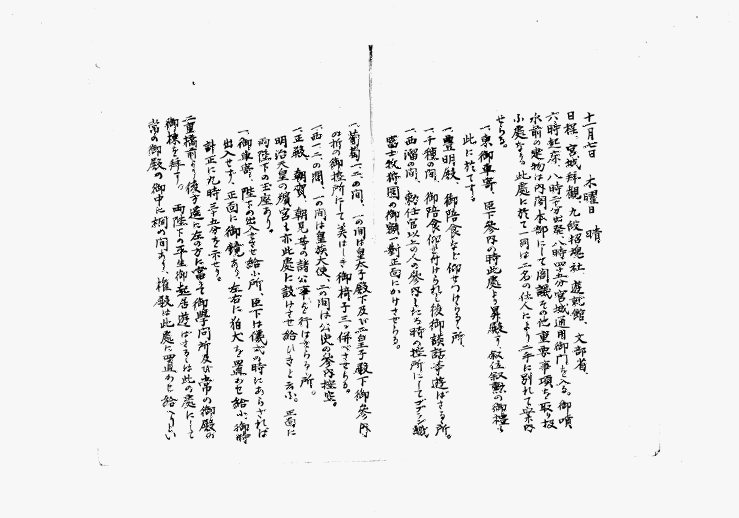 十一月七日　木曜日　晴
日程、宮城拝観、九段招魂社、遊就館、文部省、
六時起床、八時二十分出発、八時四十五分宮城通用御門を入る。御噴
水前の建物は内閣本部にして閣議その他重要事項を取り扱
ふ処なり。此処に於て一同は二名の仕人により二手に別れて案内
せらる。
一、東御車寄、臣下参内の時此処より昇殿す、叙位叙勲の御礼も
此に於てす。
一、豊明殿、御陪食など仰せつけらるゝ所、
一、千種の間、御陪食仰せ付けられし後御談話等遊ばさるゝ所。
一、西溜の間、勅任官以上の人の参内したる時の控所にしてゴブラン織
富士牧狩図の御額一対正面にかけさせらる。
一、葡萄一、二の間、一の間は皇太子殿下及び二皇子殿下御参内
の折の御控所にして美はしき御椅子三つ併べさせらる。
一、西一二の間、一の間は皇族大使、二の間は公使の参内控室。
一、正殿、朝賀、朝見等の諸公事を行はせらるゝ所。
明治天皇の殯宮も亦此処に設けさせ給ひきと云ふ。正面に
両陛下の玉座あり。
一、御車寄、陛下の出入させ給ふ所、臣下は儀式の時にあらざれば
出入せず、正面に御鏡あり、左右に狛犬を置かせ給ふ、御時
計正に九時三十五分を示せり。
二重橋前より後方遙に左の方に当る御学問所及び常の御殿の
御棟を拝す。両陛下の平生御起居遊ばさるゝは此の処にして
常の御殿の御中に桐の間あり、権殿は此処に置かせ給へりとい